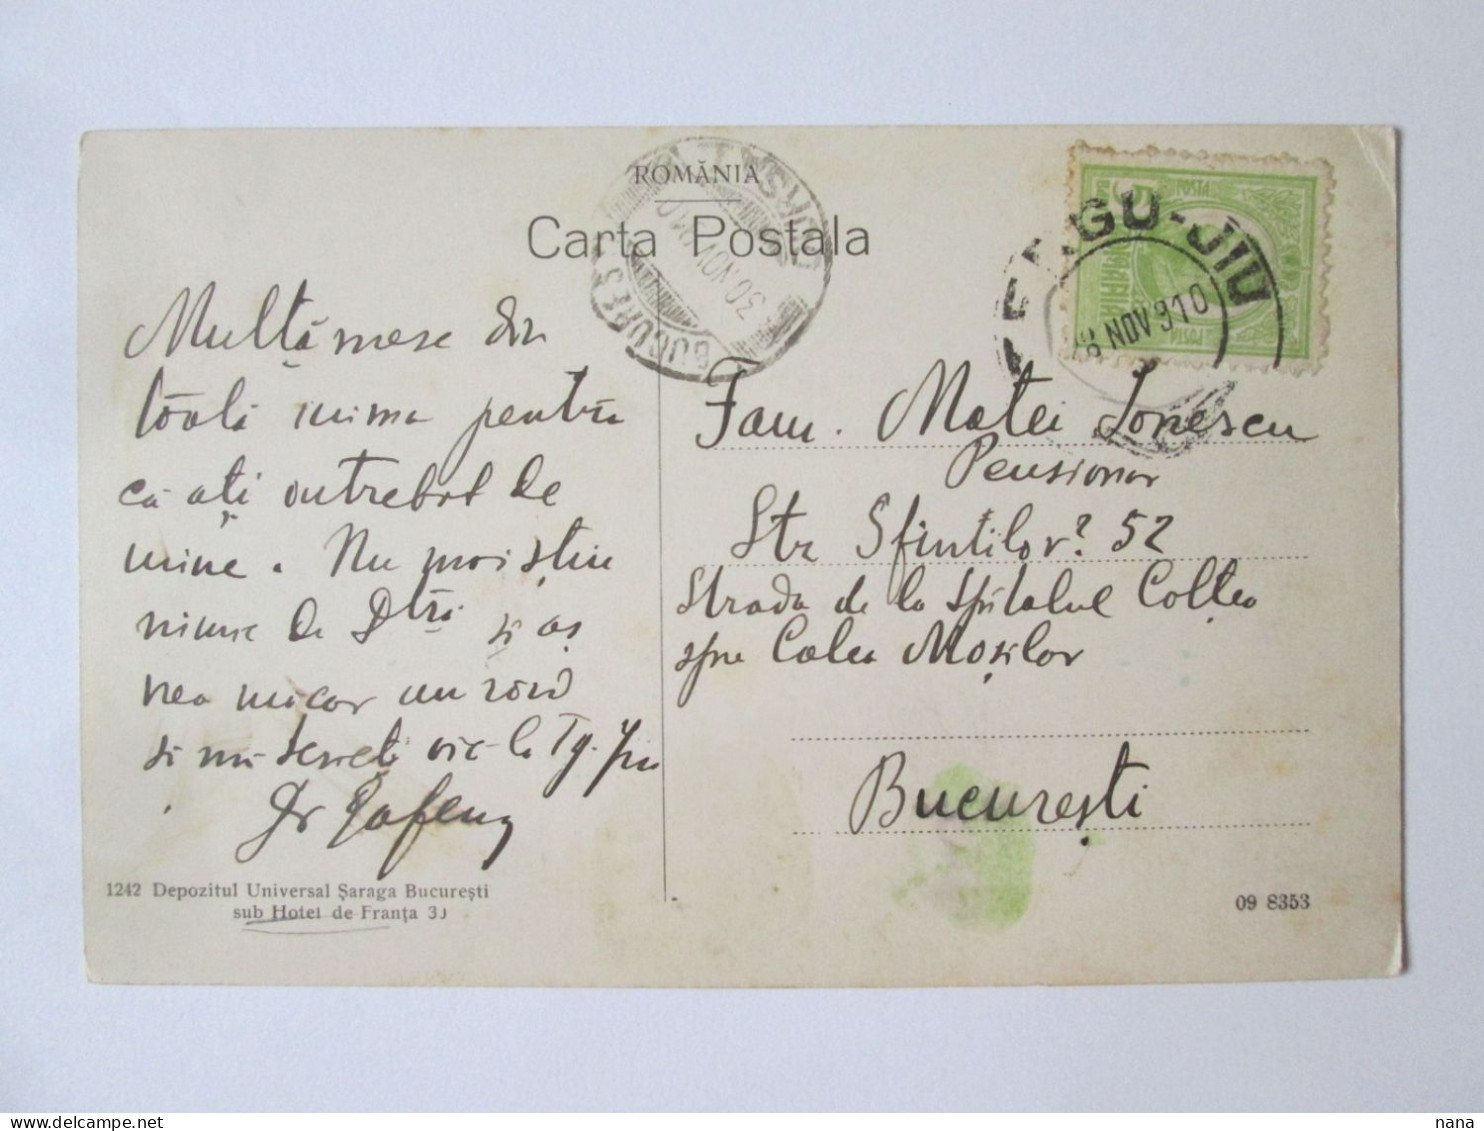 ROMÂNIA
Carta Postala
BUCUREȘ
30 NOV
GU-JIU
NOV 910
POSTA
Multămesc din
toată inima pentru
că ați întrebat de
mine. Nu mai știu
nimic de Dtră și aș
vrea măcar un
și mă la Tg. Jiu
Fam. Matei Ionescu
Pensionar
Str Sfintilor? 52
Strada de la spitalul Colțea
spre Calea Moșilor
București
1242 Depozitul Universal Șaraga București
sub Hotel de Franța 30
09 8353
nana